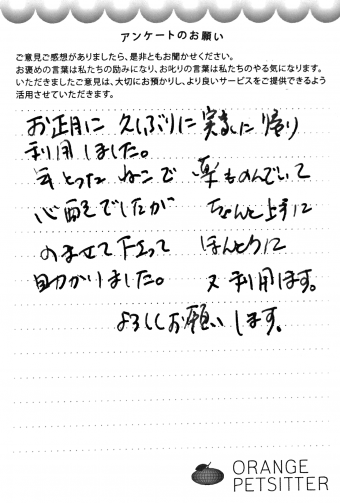 アンケートのお願い
ご意見ご感想がありましたら、是非ともお聞かせください。
お褒めの言葉は私たちの励みになり、お叱りの言葉は私たちのやる気になります。
いただきましたご意見は、大切にお預かりし、より良いサービスをご提供できるよう
活用させていただきます。
お正月に 久しぶりに 実家に 帰り
利用しました。
年とったねこで 薬ものんでいて
心配でしたが ちゃんと上手に
のませて下さって ほんとうに
助かりました。 又 利用します。
よろしくお願いします。
ORANGE
PETSITTER